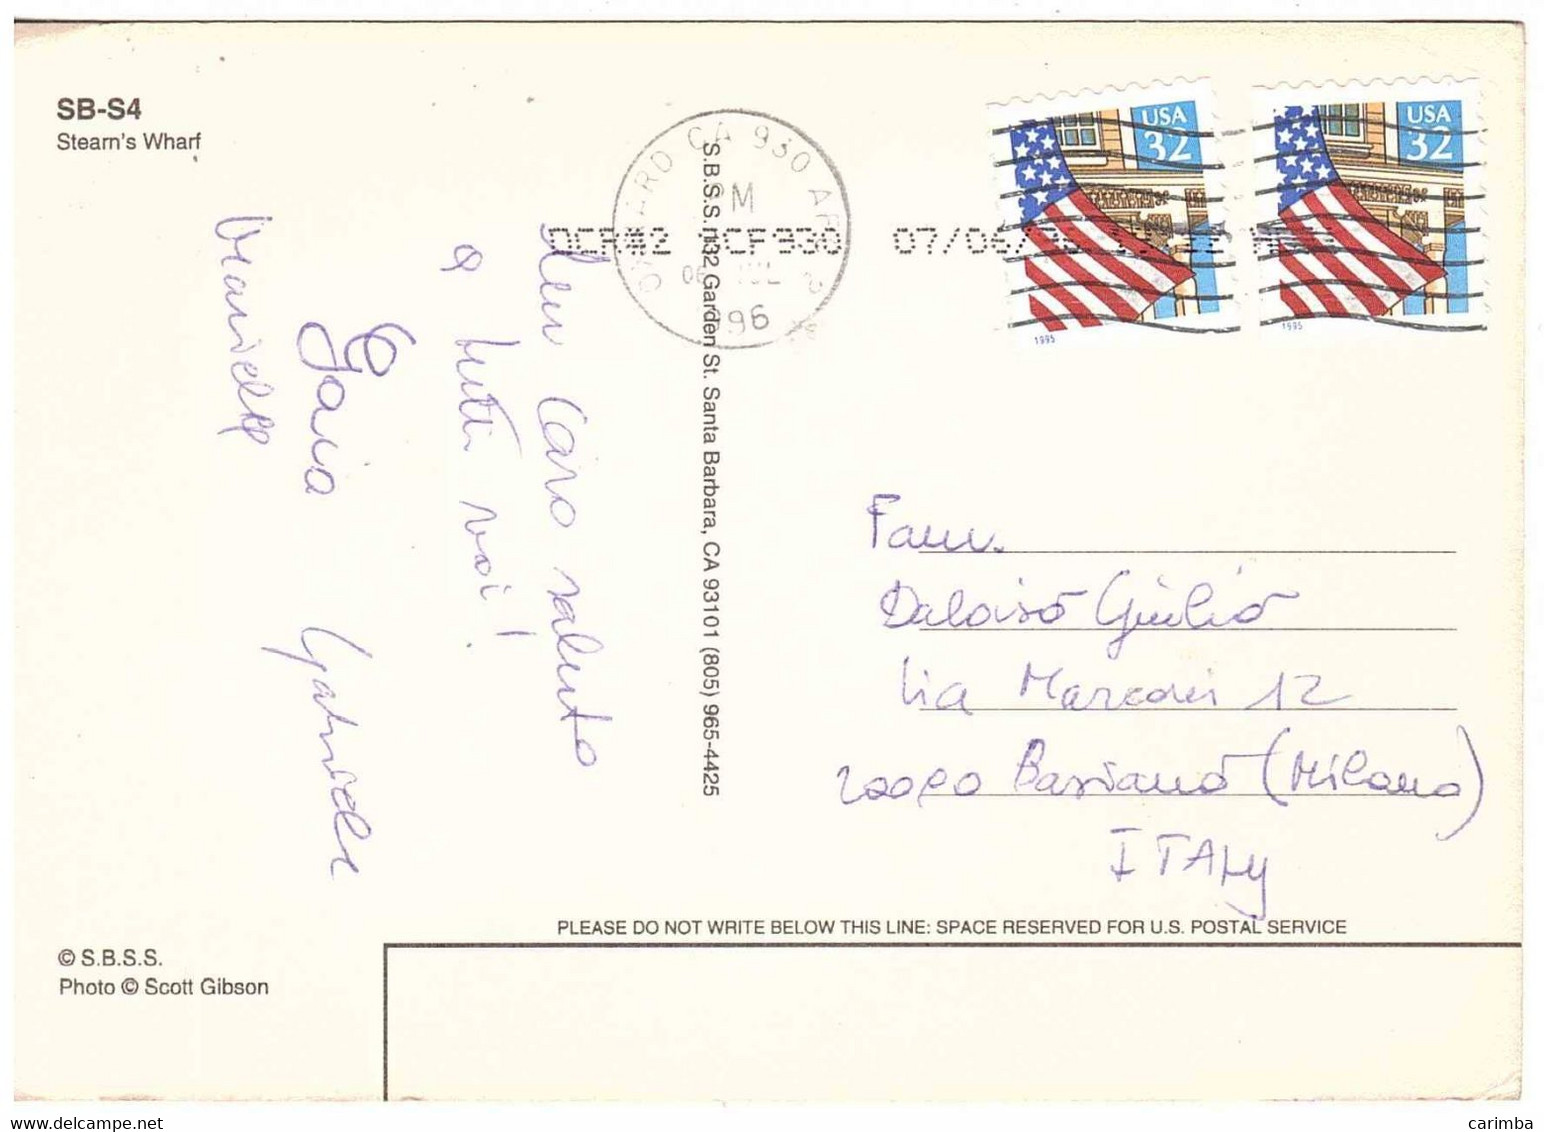 SB-S4
Stearn's Wharf
Un Caro saluto
a tutti voi!
Gaia Gabriele
S.B.S.S. 132 Garden St. Santa Barbara, CA 93101 (805) 965-4425
CA 930
PM
06 JUL
1996
OCR#2 SCF930 07/06/96
USA
32
1995
USA
32
1995
Fam.
Daloiso Giulio
Via Marconi 12
Basiano (Milano)
ITALY
PLEASE DO NOT WRITE BELOW THIS LINE: SPACE RESERVED FOR U.S. POSTAL SERVICE
© S.B.S.S.
Photo © Scott Gibson
www.delcampe.net
carimba